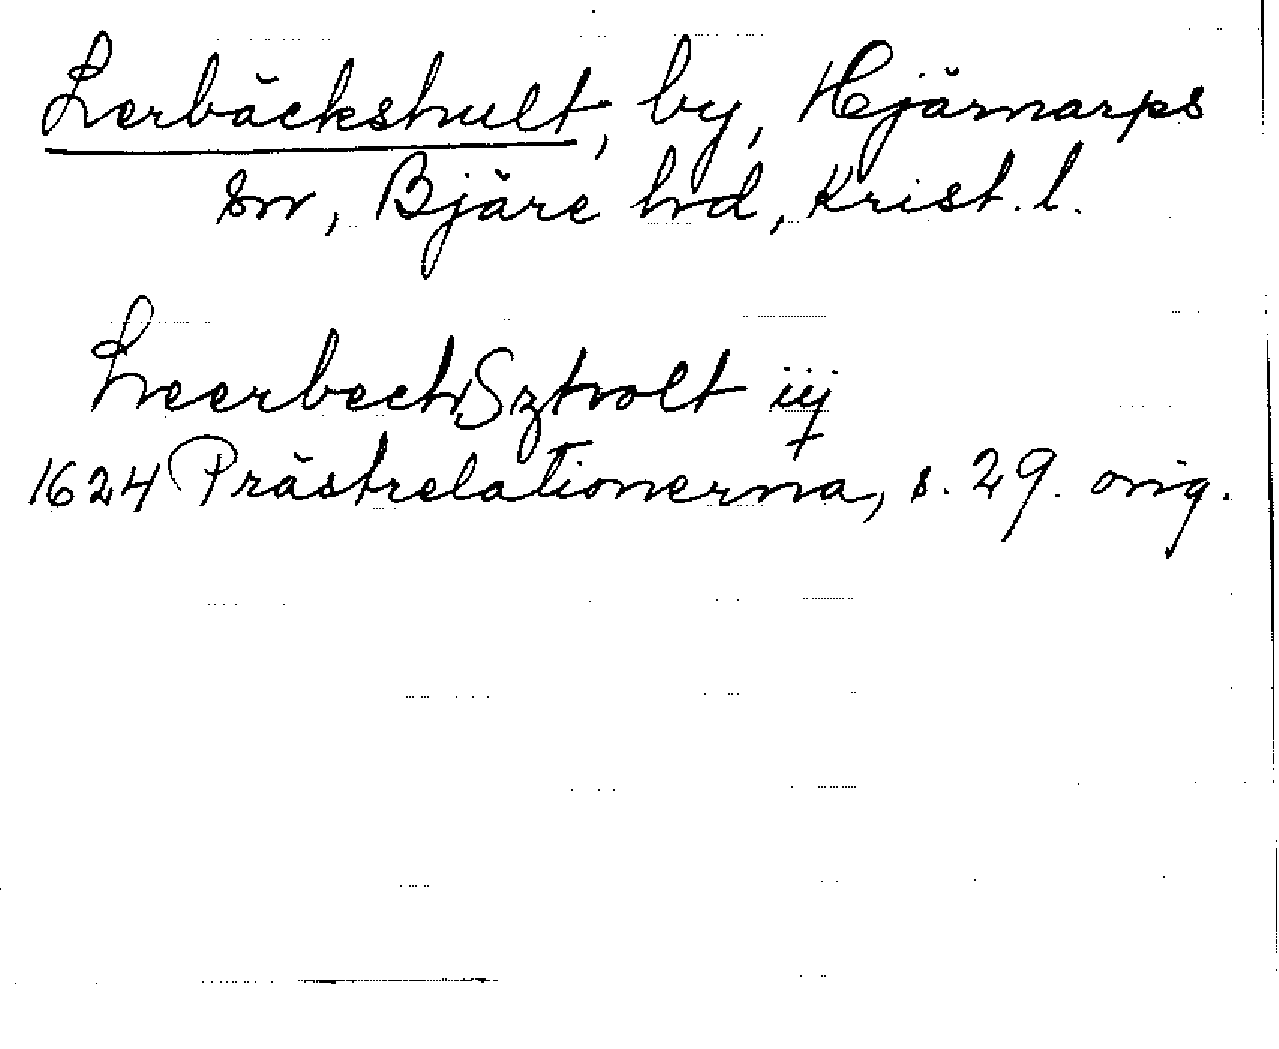 Lerbäckshult, by, Hjärnarps
sn, Bjäre hd, Krist. l.
Leerbech Szholt iij
1624 Prästrelationerna, s. 29. orig.